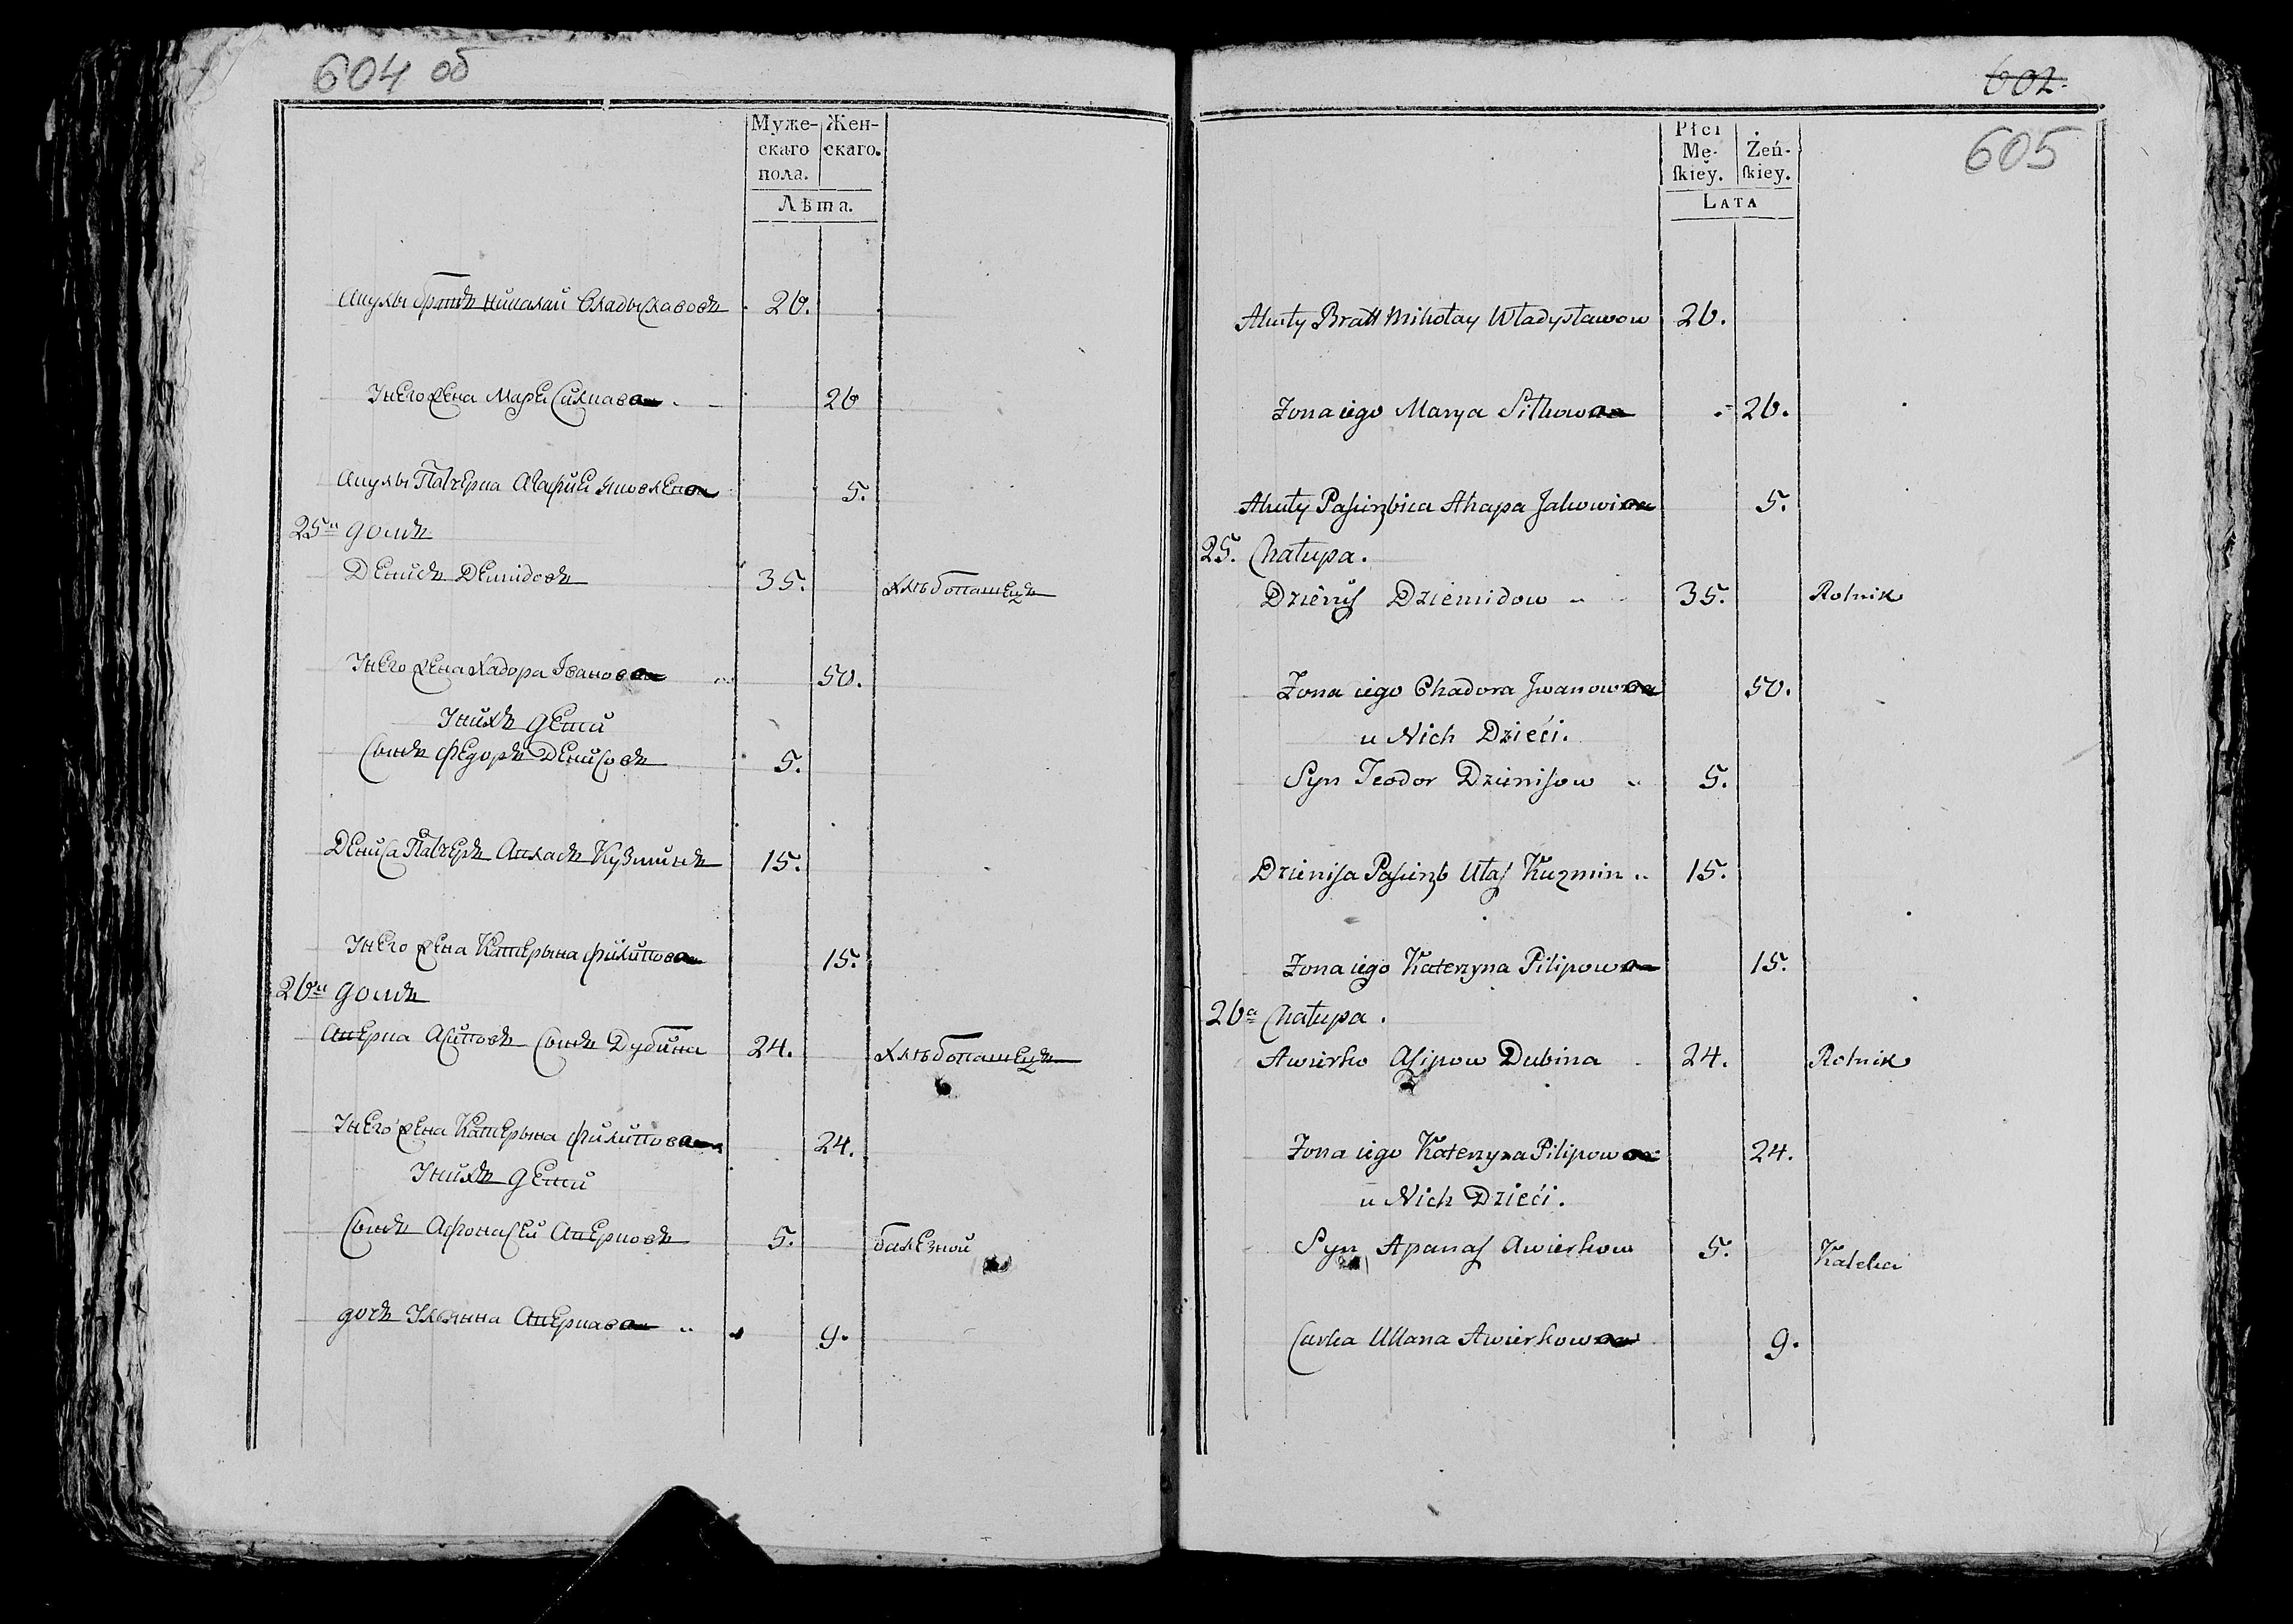 604 об
Муже-
скаго
пола.
Жен-
скаго.
Лѣта.
Акулы братъ Николай Владыславовъ 26.
У него жена Маре Силкова 26
Акулы Пасчерка Агафия Яковлева 5.
25й домъ
Денисъ Демидовъ 35. хлѣбопашецъ
У него жена Хадора Иванова 50.
У нихъ дети
Сынъ Федоръ Денисовъ 5.
Дениса Пасчеръ Ауласъ Кузминъ 15.
У него жена Катерына Филипова 15.
26й домъ
Аверка Асиповъ Сынъ Дубина 24. хлѣбопашецъ
У него жена Катерына Филипова 24.
У нихъ дети
Сынъ Афонасей Аверковъ 5. балезной
дочъ Ульянна Аверкава 9.
602.
605
Płci
Mę-
skiey.
Żeń-
skiey.
LATA
Akuły Bratt Mikołay Władysławow 26.
Żona iego Marya Siłkowa 26.
Akuły Pasierzbica Ahapa Jakowia 5.
25. Chałupa.
Dzienis Dziemidow 35. Rolnik
Żona iego Chadora Jwanowa 50.
u Nich Dzieći.
Syn Teodor Dzienisow 5.
Dzienisa Pasierzb Ułas Kuzmin 15.
Żona iego Katerzyna Pilipowa 15.
26a Chałupa.
Awierko Asipow Dubina 24. Rolnik
Żona iego Katerzyna Pilipowa 24.
u Nich Dzieći.
Syn Apanas Awierkow 5. Kaleka
Curka Ullana Awierkowa 9.